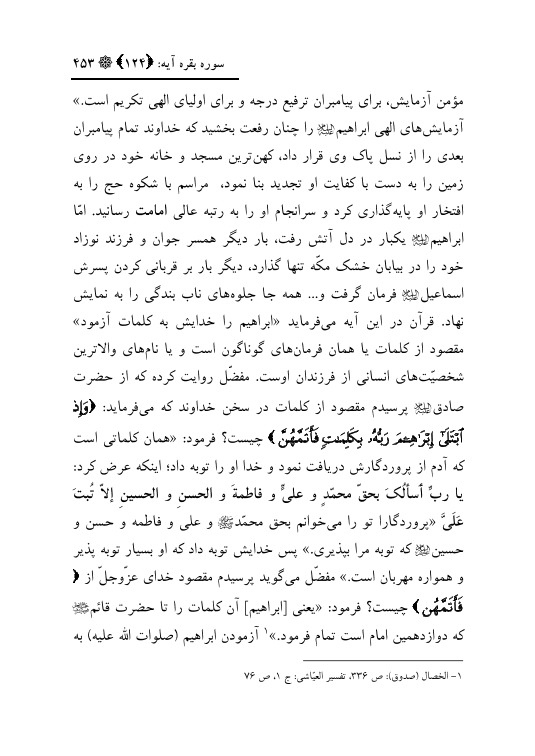 سوره بقره آیه: ﴿۱۲۴﴾ ۴۵۳
مؤمن آزمایش، برای پیامبران ترفیع درجه و برای اولیای الهی تکریم است.»
آزمایش‌های الهی ابراهیم؏ را چنان رفعت بخشید که خداوند تمام پیامبران
بعدی را از نسل پاک وی قرار داد، کهن‌ترین مسجد و خانه خود در روی
زمین را به دست با کفایت او تجدید بنا نمود، مراسم با شکوه حج را به
افتخار او پایه‌گذاری کرد و سرانجام او را به رتبه عالی امامت رسانید. امّا
ابراهیم؏ یکبار در دل آتش رفت، بار دیگر همسر جوان و فرزند نوزاد
خود را در بیابان خشک مکّه تنها گذارد، دیگر بار بر قربانی کردن پسرش
اسماعیل؏ فرمان گرفت و... همه جا جلوه‌های ناب بندگی را به نمایش
نهاد. قرآن در این آیه می‌فرماید «ابراهیم را خدایش به کلمات آزمود»
مقصود از کلمات یا همان فرمان‌های گوناگون است و یا نام‌های والاترین
شخصیّت‌های انسانی از فرزندان اوست. مفضّل روایت کرده که از حضرت
صادق؏ پرسیدم مقصود از کلمات در سخن خداوند که می‌فرماید: ﴿وَإِذِ
ٱبْتَلَىٰٓ إِبْرَٰهِـۧمَ رَبُّهُۥ بِكَلِمَـٰتٍ فَأَتَمَّهُنَّ﴾ چیست؟ فرمود: «همان کلماتی است
که آدم از پروردگارش دریافت نمود و خدا او را توبه داد؛ اینکه عرض کرد:
یا ربِّ أسألُکَ بحقّ محمّدٍ و علیٍّ و فاطمةَ و الحسنِ و الحسینِ إلاّ تُبتَ
عَلَیَّ «پروردگارا تو را می‌خوانم بحق محمّدﷺ و علی و فاطمه و حسن و
حسین؏ که توبه مرا بپذیری.» پس خدایش توبه داد که او بسیار توبه پذیر
و همواره مهربان است.» مفضّل می‌گوید پرسیدم مقصود خدای عزّوجلّ از ﴿
فَأَتَمَّهُن﴾ چیست؟ فرمود: «یعنی [ابراهیم] آن کلمات را تا حضرت قائم
که دوازدهمین امام است تمام فرمود.»۱ آزمودن ابراهیم (صلوات الله علیه) به
۱- الخصال (صدوق): ص ۳۳۶، تفسیر العیّاشی: ج ۱، ص ۷۶